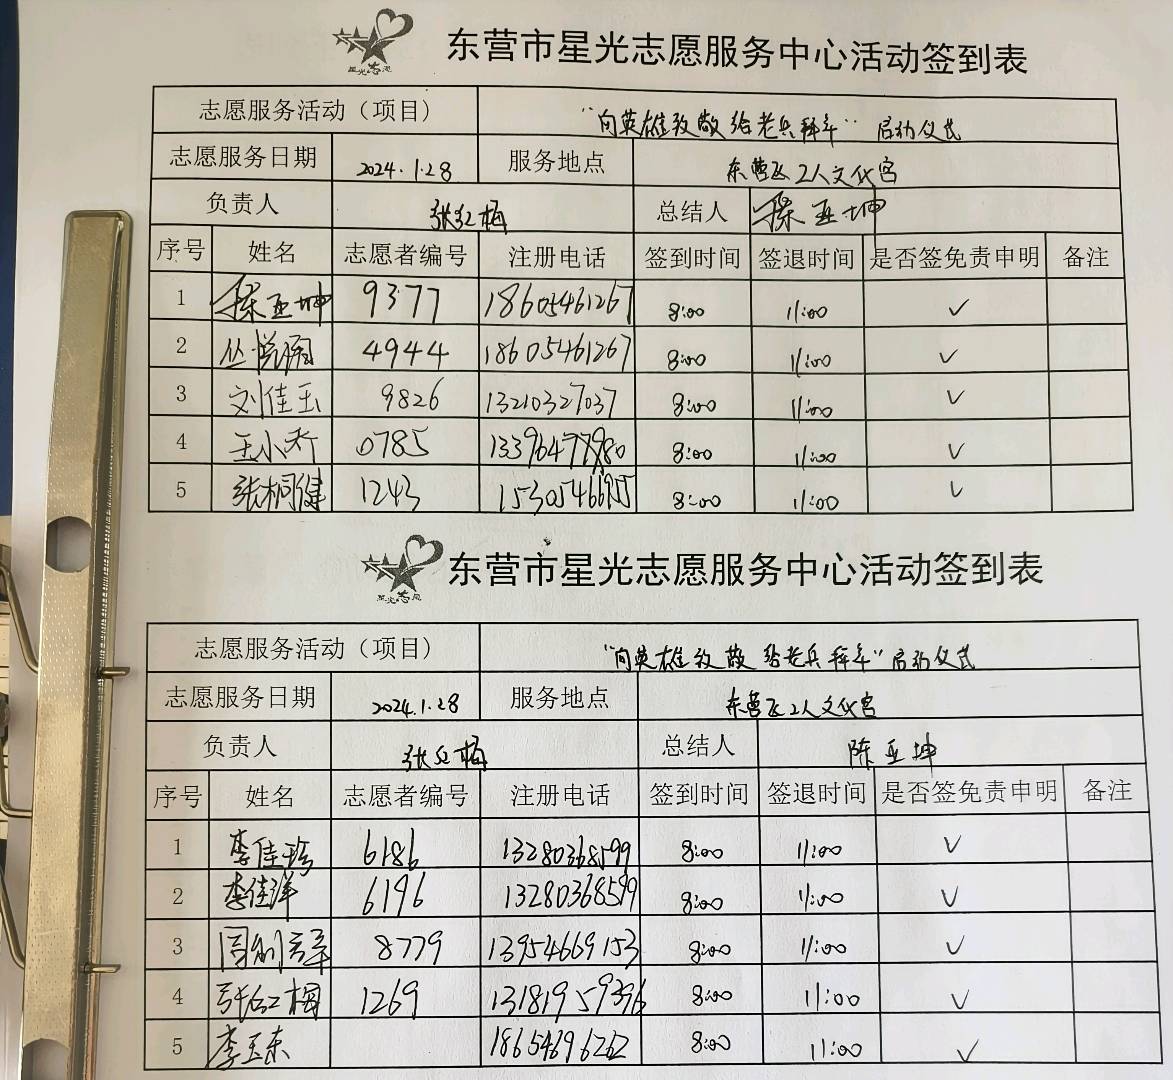 星光志愿
东营市星光志愿服务中心活动签到表
志愿服务活动（项目） "向英雄致敬 给老兵拜年" 启动仪式
志愿服务日期 2024.1.28 服务地点 东营区工人文化宫
负责人 张红梅 总结人 亚坤
序号 姓名 志愿者编号 注册电话 签到时间 签退时间 是否签免责申明 备注
1 亚坤 9377 18605461267 8:00 11:00 ✓
2 丛悦 4944 18605461267 8:00 11:00 ✓
3 刘佳玉 9826 13210327037 8:00 11:00 ✓
4 王小乔 0785 8:00 11:00 ✓
5 张桐健 1243 8:00 11:00 ✓
星光志愿
东营市星光志愿服务中心活动签到表
志愿服务活动（项目） "向英雄致敬 给老兵拜年" 启动仪式
志愿服务日期 2024.1.28 服务地点 东营区工人文化宫
负责人 张红梅 总结人 陈亚坤
序号 姓名 志愿者编号 注册电话 签到时间 签退时间 是否签免责申明 备注
1 李佳珍 6186 13280368599 8:00 11:00 ✓
2 李佳洋 6196 13280368599 8:00 11:00 ✓
3 8779 13954669153 8:00 11:00 ✓
4 张红梅 1269 13181959396 8:00 11:00 ✓
5 李玉东 18654696262 8:00 11:00 ✓